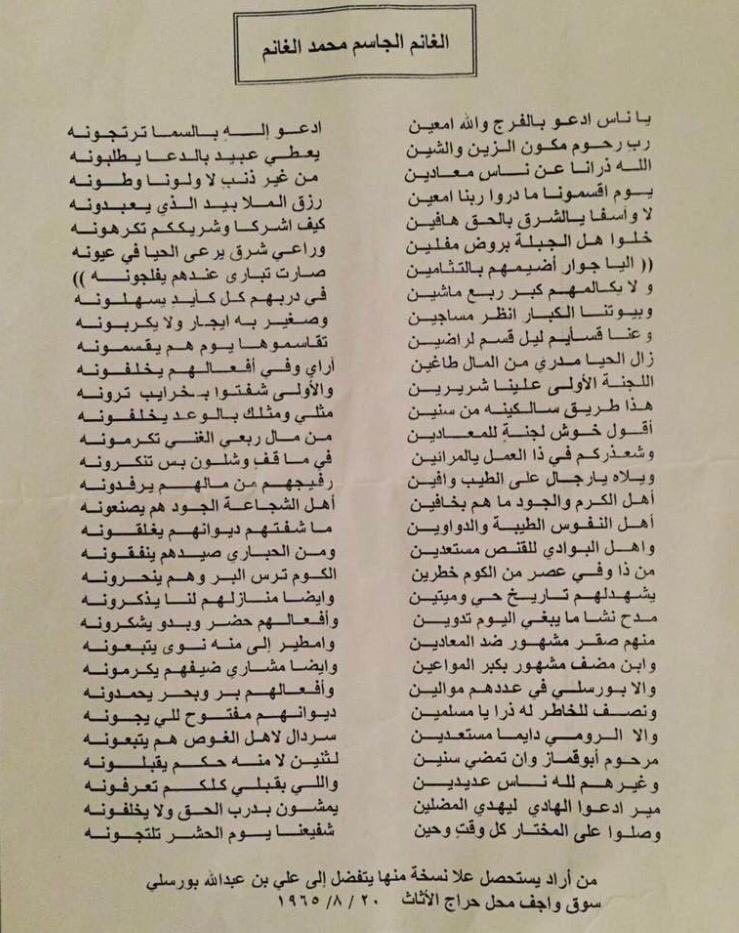 الغانم الجاسم محمد الغانم
يا ناس ادعو بالفرج والله امعين    ادعو إله بالسما ترتجونه
رب رحوم مكون الزين والشين    يعطي عبيد بالدعا يطلبونه
الله ذرانا عن ناس معادين    من غير ذنب لا ولونا وطونه
يوم اقسمونا ما دروا ربنا امعين    رزق الملا بيد الذي يعبدونه
لا وأسفا يالشرق بالحق هافين    كيف اشركا وشريككم تكرهونه
خلوا هل الجبلة بروض مفلين    وراعي شرق يرعى الحيا في عيونه
(( اليا جوار أضيمهم بالتثامين    صارت تبارى عندهم يفلجونه ))
و لا يكالمهم كبر ربع ماشين    في دربهم كل كايد يسهلونه
وبيوتنا الكبار انظر مساجين    وصغير به ايجار ولا يكربونه
و عنا قسايم ليل قسم لراضين    تقاسموها يوم هم يقسمونه
زال الحيا مدري من المال طاغين    أراي وفي أفعالهم يخلفونه
اللجنة الأولى علينا شريرين    والأولى شفتوا بـخرايب ترونه
هذا طريق سالكينه من سنين    مثلي ومثلك بالوعد يخلفونه
أقول خوش لجنة للمعادين    من مال ربعي الغني تكرمونه
وشعذركم في ذا العمل يالمرائين    في ما قف وشلون بس تنكرونه
ويلاه يارجال على الطيب وافين    رفيجهم من مالهم يرفدونه
أهل الكرم والجود ما هم بخافين    أهل الشجاعة الجود هم يصنعونه
أهل النفوس الطيبة والدواوين    ما شفتهم ديوانهم يغلقونه
واهل البوادي للقنص مستعدين    ومن الحباري صيدهم ينفقونه
من ذا وفي عصر من الكوم خطرين    الكوم ترس البر وهم ينحرونه
يشهدلهم تاريخ حي وميتين    وايضا منازلهم لنا يذكرونه
مدح نشا ما يبغي اليوم تدوين    وأفعالهم حضر وبدو يشكرونه
منهم صقر مشهور ضد المعادين    وامطير إلى منه نوى يتبعونه
وابن مضف مشهور بكبر المواعين    وايضا مشاري ضيفهم يكرمونه
والا بورسلي في عددهم موالين    وأفعالهم بر وبحر يحمدونه
ونصف للخاطر له ذرا يا مسلمين    ديوانهم مفتوح للي يجونه
والا الرومي دايما مستعدين    سردال لاهل الغوص هم يتبعونه
مرحوم أبوقماز وان تمضي سنين    لثنين لا منه حكم يقبلونه
وغيرهم لله ناس عديدين    واللي بقبلي كلكم تعرفونه
مير ادعوا الهادي ليهدي المضلين    يمشون بدرب الحق ولا يخلفونه
وصلوا على المختار كل وقت وحين    شفيعنا يوم الحشر تلتجونه
من أراد يستحصل علا نسخة منها يتفضل إلى علي بن عبدالله بورسلي
سوق واجف محل حراج الأثاث ٢٠ / ٨ / ١٩٦٥